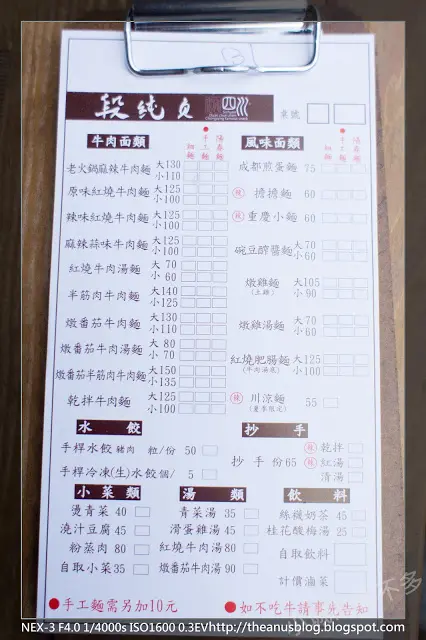 段純貞 四川
桌號
牛肉面類
細麵 手工麵 陽春麵
老火鍋麻辣牛肉麵 大130 小110
原味紅燒牛肉麵 大125 小100
辣味紅燒牛肉麵 大125 小100
麻辣蒜味牛肉麵 大125 小100
紅燒牛肉湯麵 大 70 小 60
半筋肉牛肉麵 大140 小125
燉番茄牛肉麵 大130 小110
燉番茄牛肉湯麵 大 80 小 70
燉番茄半筋肉牛肉麵 大150 小135
乾拌牛肉麵 大125 小100
風味面類
細麵 手工麵 陽春麵
成都煎蛋麵 75
辣 擔擔麵 60
辣 重慶小麵 60
碗豆醇醬麵 大70 小 60
燉雞麵 (土雞) 大105 小 90
燉雞湯麵 大70 小 60
紅燒肥腸麵 (牛肉湯底) 大125 小100
辣 川涼麵 (夏季限定) 55
水 餃
手桿水餃 豬肉 粒/份 50
手桿冷凍(生)水餃 個/ 5
抄 手
抄 手 份65
辣 乾拌
辣 紅湯
清湯
小菜類
燙青菜 40
澆汁豆腐 45
粉蒸肉 80
自取小菜35
湯 類
青菜湯 35
滑蛋雞湯 45
紅燒牛肉湯80
燉番茄牛肉湯90
飲 料
絲襪奶茶 45
桂花酸梅湯 25
自取飲料
計價滷菜
●手工麵需另加10元
●如不吃牛請事先告知
NEX-3 F4.0 1/4000s ISO1600 0.3EV http://theanusblog.blogspot.com